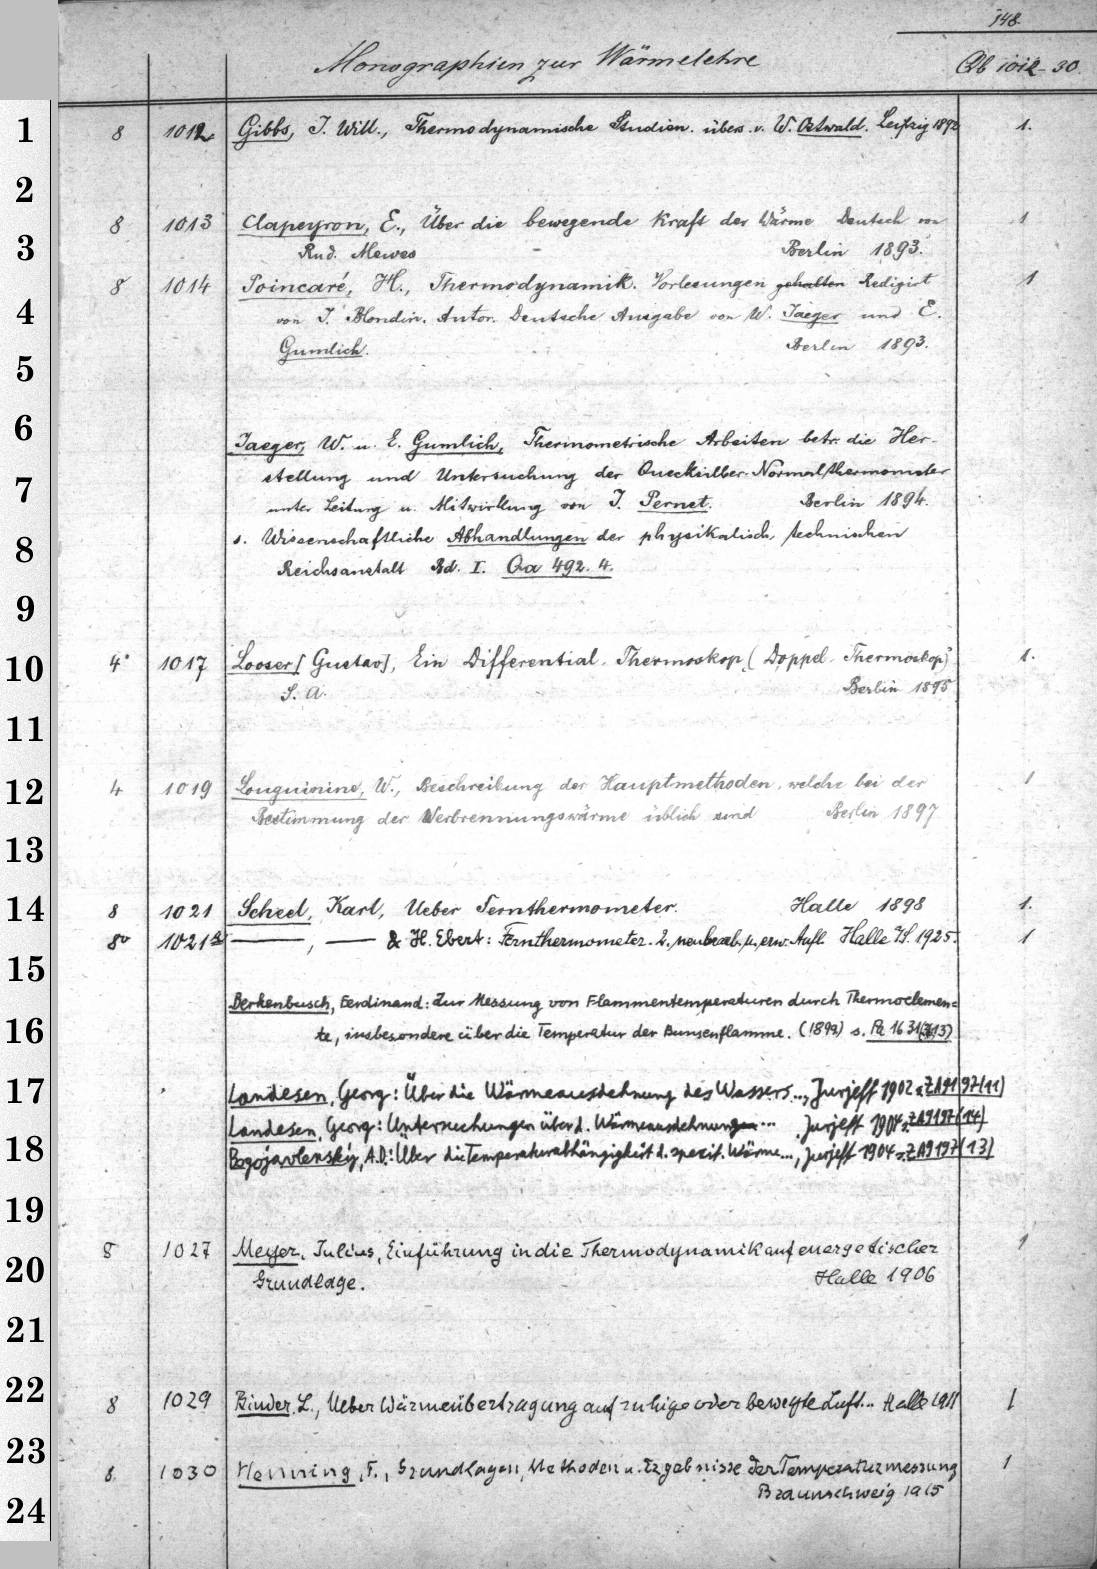 148.
Monographien zur Wärmelehre Qb 1012-30.
1
8 1012 Gibbs, J. Will., Thermodynamische Studien. übers. v. W. Ostwald. Leipzig 1892 1.
2
8 1013 Clapeyron, E., Über die bewegende Kraft der Wärme Deutsch von 1
3
Rud. Mewes - Berlin 1893.
8 1014 Poincaré, H., Thermodynamik. Vorlesungen gehalten Redigirt 1
4
von J. Blondin. Autor. Deutsche Ausgabe von W. Jaeger und E.
Gumlich. Berlin 1893.
5
6
Jaeger, W. u. E. Gumlich, Thermometrische Arbeiten betr. die Her-
stellung und Untersuchung der Quecksilber-Normalthermometer
7
unter Leitung u. Mitwirkung von J. Pernet. Berlin 1894.
s. Wissenschaftliche Abhandlungen der physikalisch, technischen
8
Reichsanstalt Bd. I. Qa 492. 4.
9
10
4° 1017 Looser [Gustav], Ein Differential-Thermoskop (Doppel-Thermoskop) 1.
S. A. Berlin 1895
11
12
4 1019 Louguinine, W., Beschreibung der Hauptmethoden, welche bei der 1
Bestimmung der Verbrennungswärme üblich sind Berlin 1897
13
14
8 1021 Scheel, Karl, Ueber Fernthermometer. Halle 1898 1.
8° 1021a ——, —— & H. Ebert: Fernthermometer. 2. neubearb. u. erw. Aufl. Halle /S. 1925. 1
15
Berkenbusch, Ferdinand: Zur Messung von Flammentemperaturen durch Thermoelemen=
16
te, insbesondere über die Temperatur der Bunsenflamme. (1899) s. 1631 (13)
17
Landesen, Georg: Über die Wärmeausdehnung des Wassers..., Jurjeff 1902 s. ZA9197(11)
Landesen, Georg: Untersuchungen über d. Wärmeausdehnungen... , Jurjeff 1904 s. ZA9197(14)
18
Bogojavlensky, A.D.: Über die Temperaturabhängigkeit d. spezif. Wärme..., Jurjeff 1904 s. ZA9197(13)
19
8 1027 Meyer, Julius, Einführung in die Thermodynamik auf energetischer 1
20
Grundlage. Halle 1906
21
22
8 1029 Binder, L., Ueber Wärmeübertragung auf ruhige oder bewegte Luft... Halle 1911 1
23
8. 1030 Henning, F., Grundlagen, Methoden u. Ergebnisse der Temperaturmessung 1
Braunschweig 1915
24